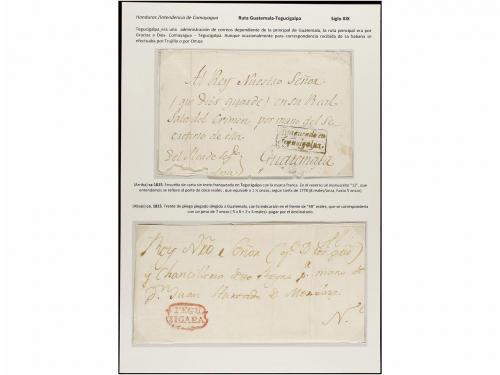 Honduras /Intendencia de Comayagua Ruta Guatemala-Tegucigalpa Siglo XIX
Tegucigalpa era una administración de correos dependiente de la principal de Guatemala, la ruta principal era por
Gracias a Dios- Comayagua – Tegucigalpa. Aunque ocasionalmente para correspondencia recibida de la habana se
efectuaba por Trujillo o por Omoa
Al Rey Nuestro Señor
(que Dios guarde) en su Real
Sala del Crimen por mano del Se
cretario de ella
Franqueado en
Tegucigalpa.
Guatemala
(Arriba) ca 1815. Envuelta de carta sin texto franqueada en Tegucigalpa con la marca franca. En el reverso un manuscrito "12", que
entendemos se refiere al porte de doce reales, que equivale a 2 ½ onzas, según tarifa de 1779 (6 reales/onza, hasta 5 onzas)
(Abajo) ca. 1815. Frente de pliego plegado dirigido a Guatemala, con la indicación en el frente de "38" reales, que se correspondería
con un peso de 7 onzas ( 5 x 6 + 2 x 4 reales) pagar por el destinatario.
Rey Nro Señor
y Chancilleria mano de
Juan Hurtado de Mendoza
TEGU
SIGAPA